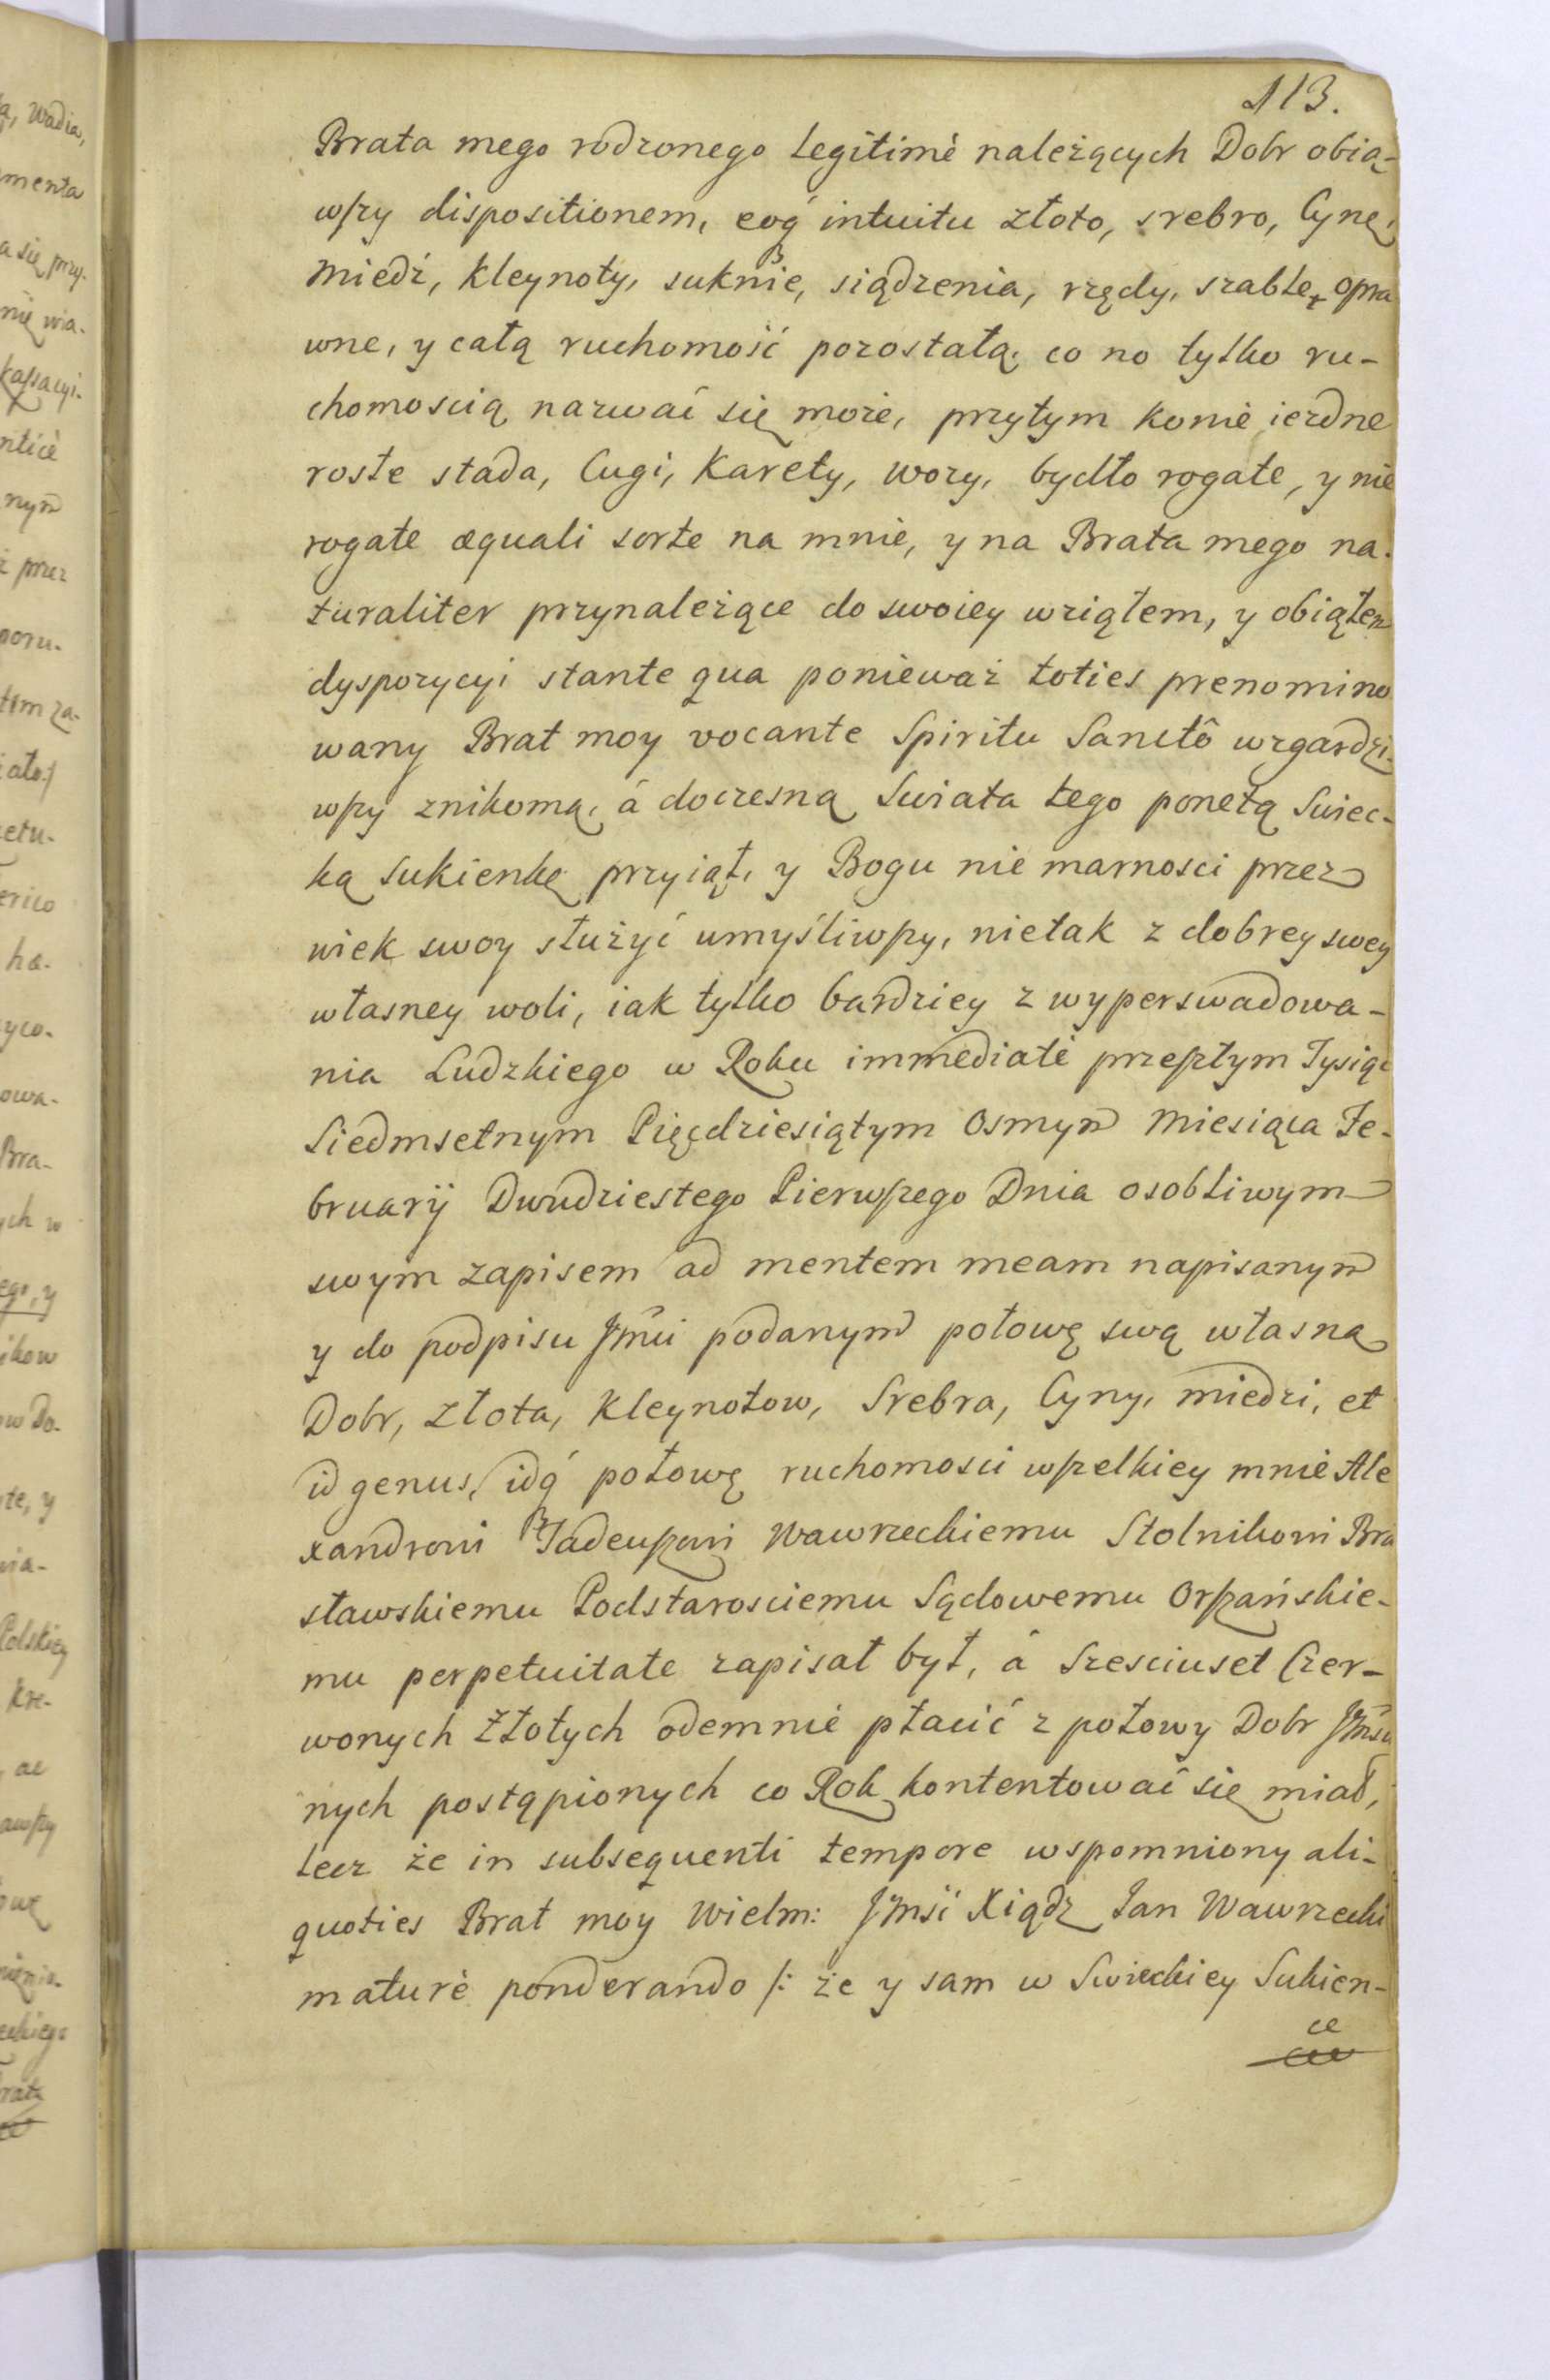 113.
Brata mego rodzonego Legitimè należących Dobr obią-
wszy dispositionem, eoq́ intuitu złoto, srebro, Cynę,
Miedź, Kleynoty, suknie, siądzenia, rzędy, szable, opra
wne, y całą ruchomość pozostałą, co no tylko ru-
chomoscią nazwać się może, przytym konie iezdne
rosłe stada, Cugi, Karety, wozy, bydło rogate, y nie
rogate æquali sorte na mnie, y na Brata mego na-
turaliter przynależące do swoiey wziąłem, y obiąłem
dyspozycyi stante qua ponieważ toties prenomino
wany Brat moy vocante Spiritu Sanctô wzgardzi-
wszy znikomą, á doczesną Swiata tego ponętą Swiec-
ką Sukienkę przyiął, y Bogu nie marnosci przez
wiek swoy służyć umyśliwszy, nietak z dobrey swey
własney woli, iak tylko bardziey z wyperswadowa-
nia Ludzkiego w Roku immediatè przeszłym Tysiąc
Siedmsetnym Pięćdziesiątym Osmym Miesiąca Fe-
bruarÿ Dwudziestego Pierwszego Dnia osobliwym
swym zapisem ad mentem meam napisanym
y do podpisu Jm̃ui podanym połowę swą własną
Dobr, złota, Kleynotow, Srebra, Cyny, miedzi, et
id genus, idq́ połowę ruchomosci wszelkiey mnie Ale
xandrowi Tadeuszowi Wawrzeckiemu Stolnikowi Bra
sławskiemu Podstarosciemu Sądowemu Orszańskie-
mu perpetuitate zapisał był, á Szesciuset Czer-
wonych Złotych odemnie płacić z połowy Dobr
nych postąpionych co Rok kontentować się miał,
lecz że in subsequenti tempore wspomniony ali-
quoties Brat moy Wielm: Jm̃ści Xiądz Jan Wawrzecki
maturè ponderando /: że y sam w Swieckiey Sukien-
ce